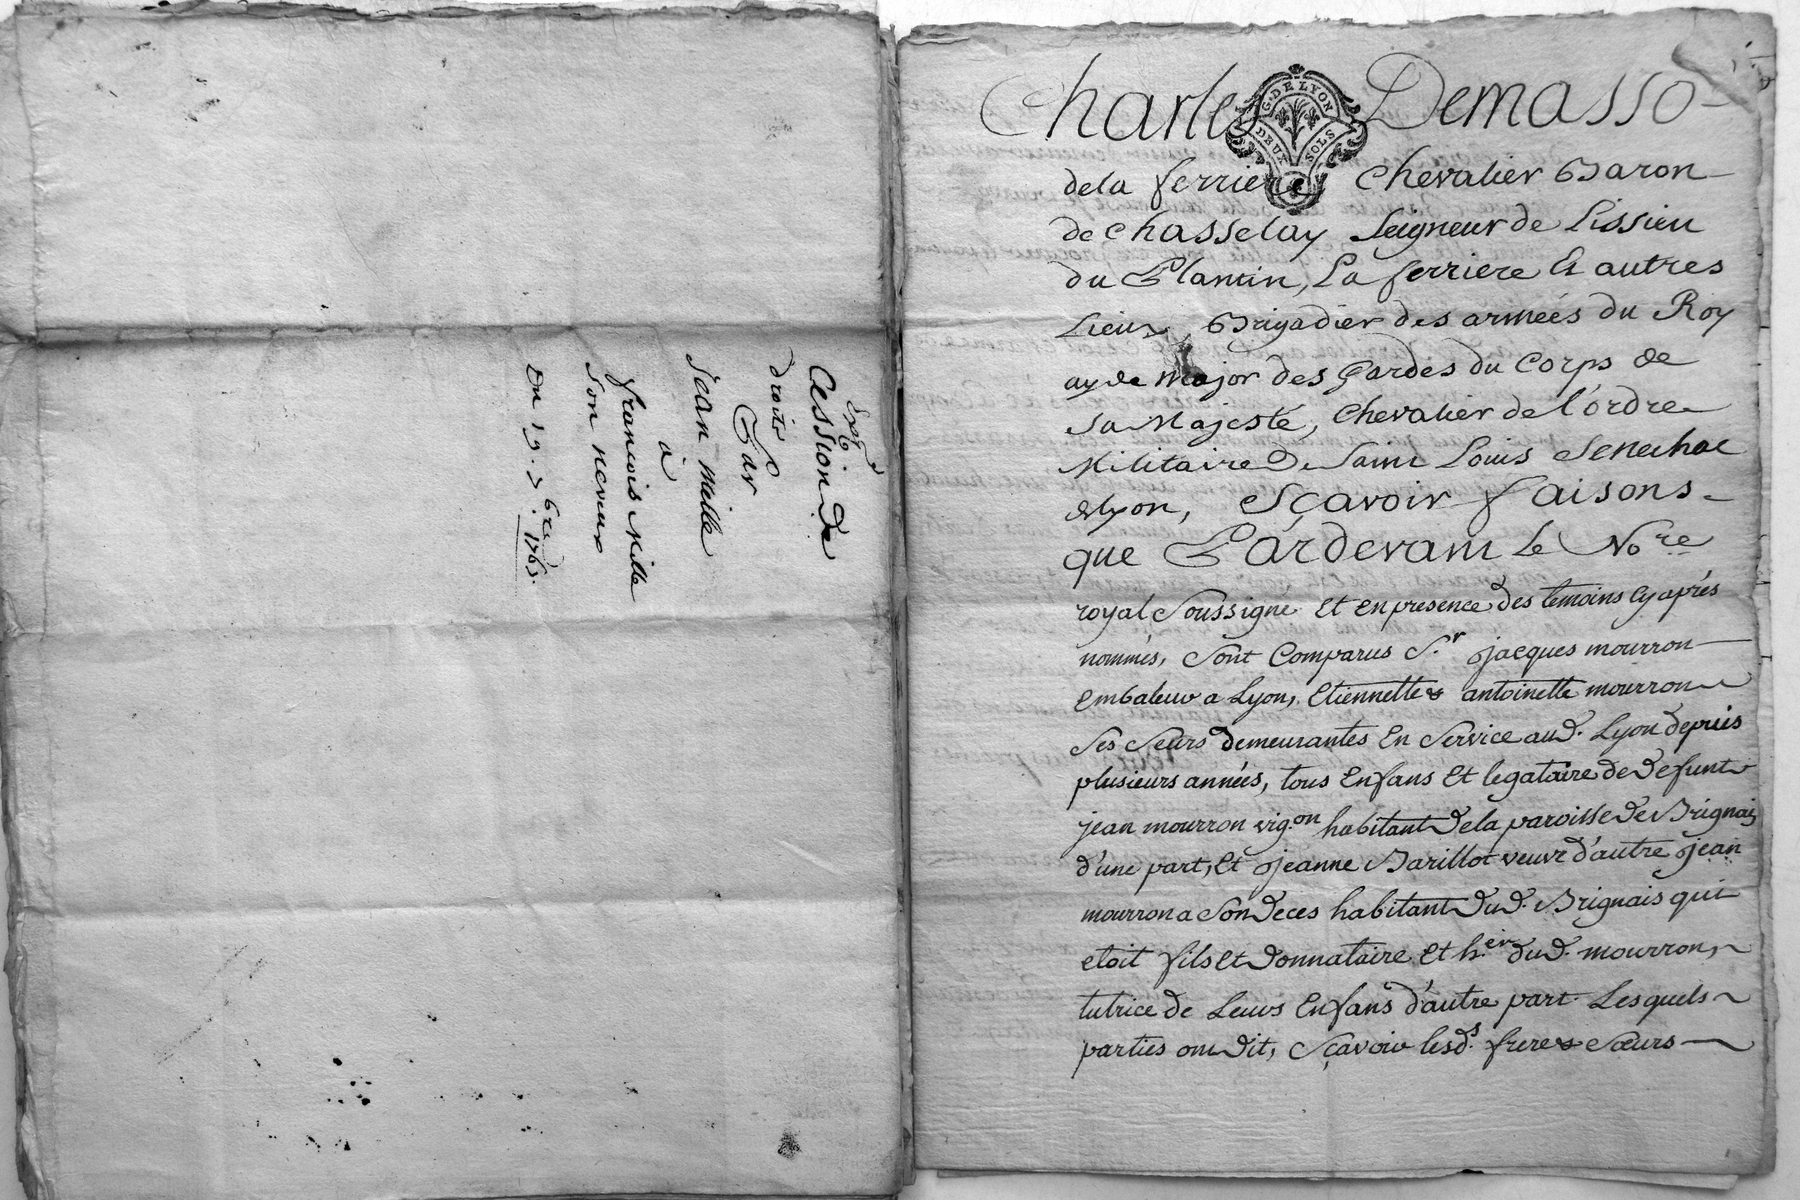 Expé
Cession de
droits
Par
Jean Mille
à
francois Mille
son neveux
Du 19. 7bre 1763.
Charles Demasso
G. DE LYON
DEUX SOLS
dela ferriere Chevalier Baron
de Chasselay Seigneur de Lissieu
du Plantin, La ferriere Et autres
Lieux, Brigadier des armées du Roy
ayde Major des Gardes du Corps de
Sa Majesté, Chevalier de l'ordre
Militaire de Saint Louis Senechal
de Lyon, Sçavoir faisons
que Pardevant Le Nore
royal Soussigné Et en presence des temoins Cy après
nommés, Sont Comparus S.r Jacques mourron
Embaleur a Lyon, Etiennette & antoinette mourron
Ses Seurs demeurantes En Service aud. Lyon depuis
plusieurs années, tous Enfans Et legataire de defunt
jean mourron vig.on habitant dela paroisse de Brignais
d'une part, Et Jeanne Barillot veuve d'autre Jean
mourron a Son deces habitant dud. Brignais qui
etoit fils Et donnataire Et h.er dud. mourron,
tutrice de Leurs Enfans d'autre part. Lesquels
parties ont dit, Sçavoir lesd.s frere & Sœurs